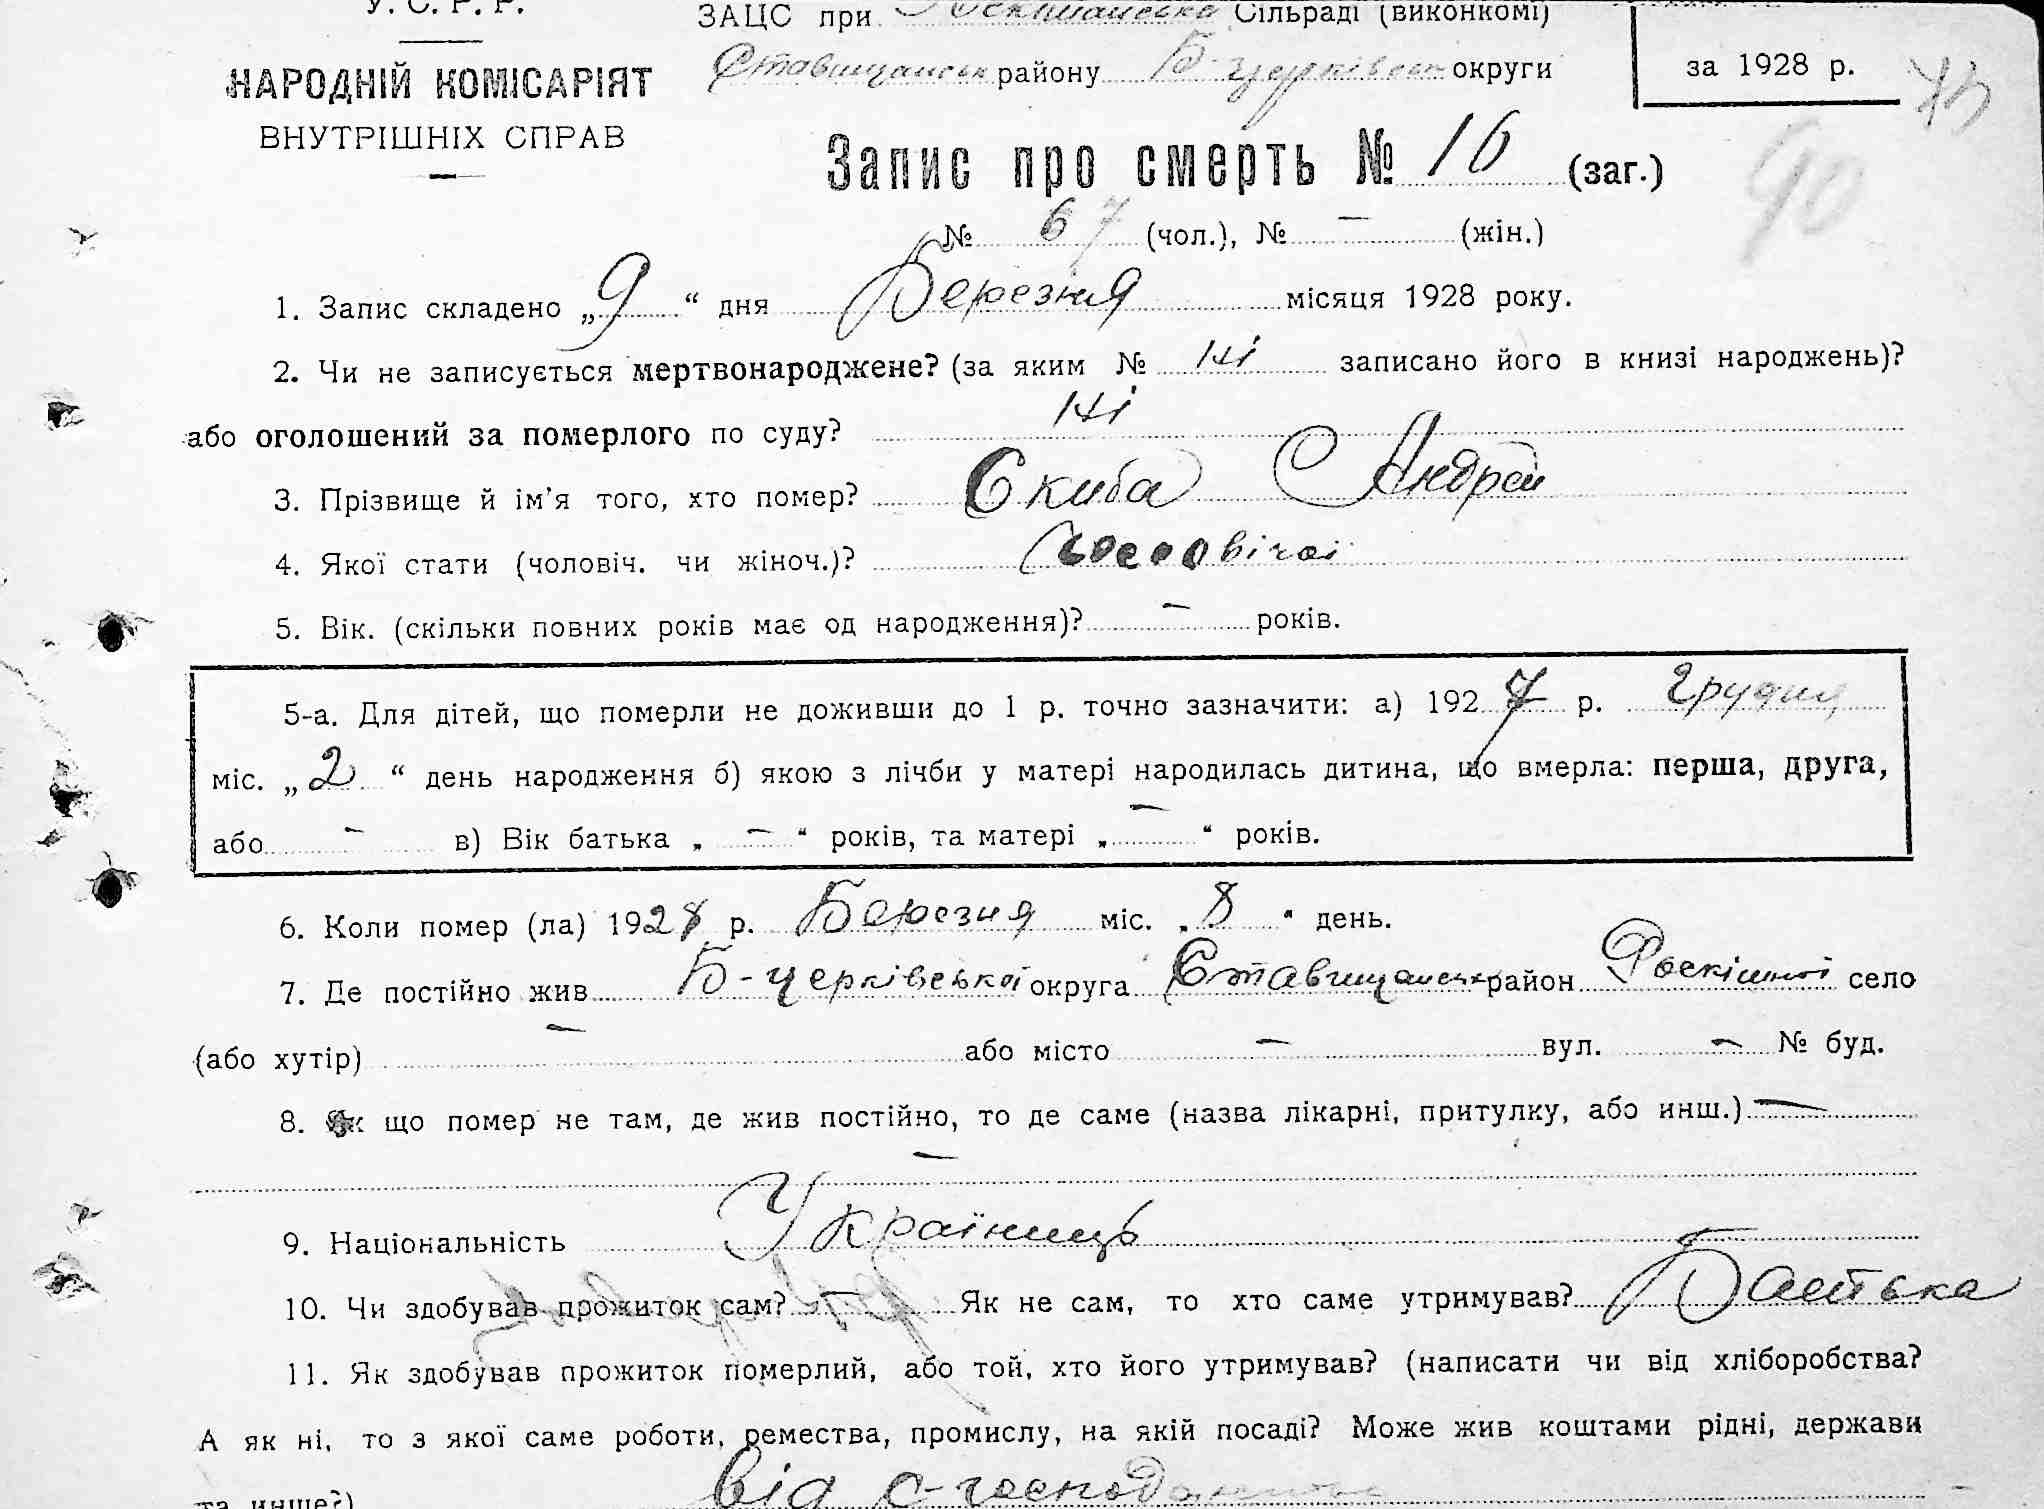 У. С. Р. Р.
НАРОДНІЙ КОМІСАРІЯТ
ВНУТРІШНІХ СПРАВ
ЗАЦС при Сільраді (виконкомі)
Ставищанськ району Б-церківськ округи
за 1928 р.
90
Запис про смерть № 16 (заг.)
№ 67 (чол.), № — (жін.)
1. Запис складено „9“ дня Березня місяця 1928 року.
2. Чи не записується мертвонароджене? (за яким № ні записано його в книзі народжень)?
або оголошений за померлого по суду? ні
3. Прізвище й ім'я того, хто помер? Скиба Андрей
4. Якої стати (чоловіч. чи жіноч.)?
5. Вік. (скільки повних років має од народження)? — років.
5-а. Для дітей, що померли не доживши до 1 р. точно зазначити: а) 1927 р. грудня
міс. „2“ день народження б) якою з лічби у матері народилась дитина, що вмерла: перша, друга,
або — в) Вік батька „—“ років, та матері „—“ років.
6. Коли помер (ла) 1928 р. Березня міс. „8“ день.
7. Де постійно жив Б-церківської округа Ставищанськ район Роскішної село
(або хутір) — або місто — вул. — № буд.
8. Як що помер не там, де жив постійно, то де саме (назва лікарні, притулку, або инш.) —
—
9. Національність Українець
10. Чи здобував прожиток сам? — Як не сам, то хто саме утримував? Батька
11. Як здобував прожиток померлий, або той, хто його утримував? (написати чи від хліборобства?
А як ні, то з якої саме роботи, ремества, промислу, на якій посаді? Може жив коштами рідні, держави
та инше?) від с-господ